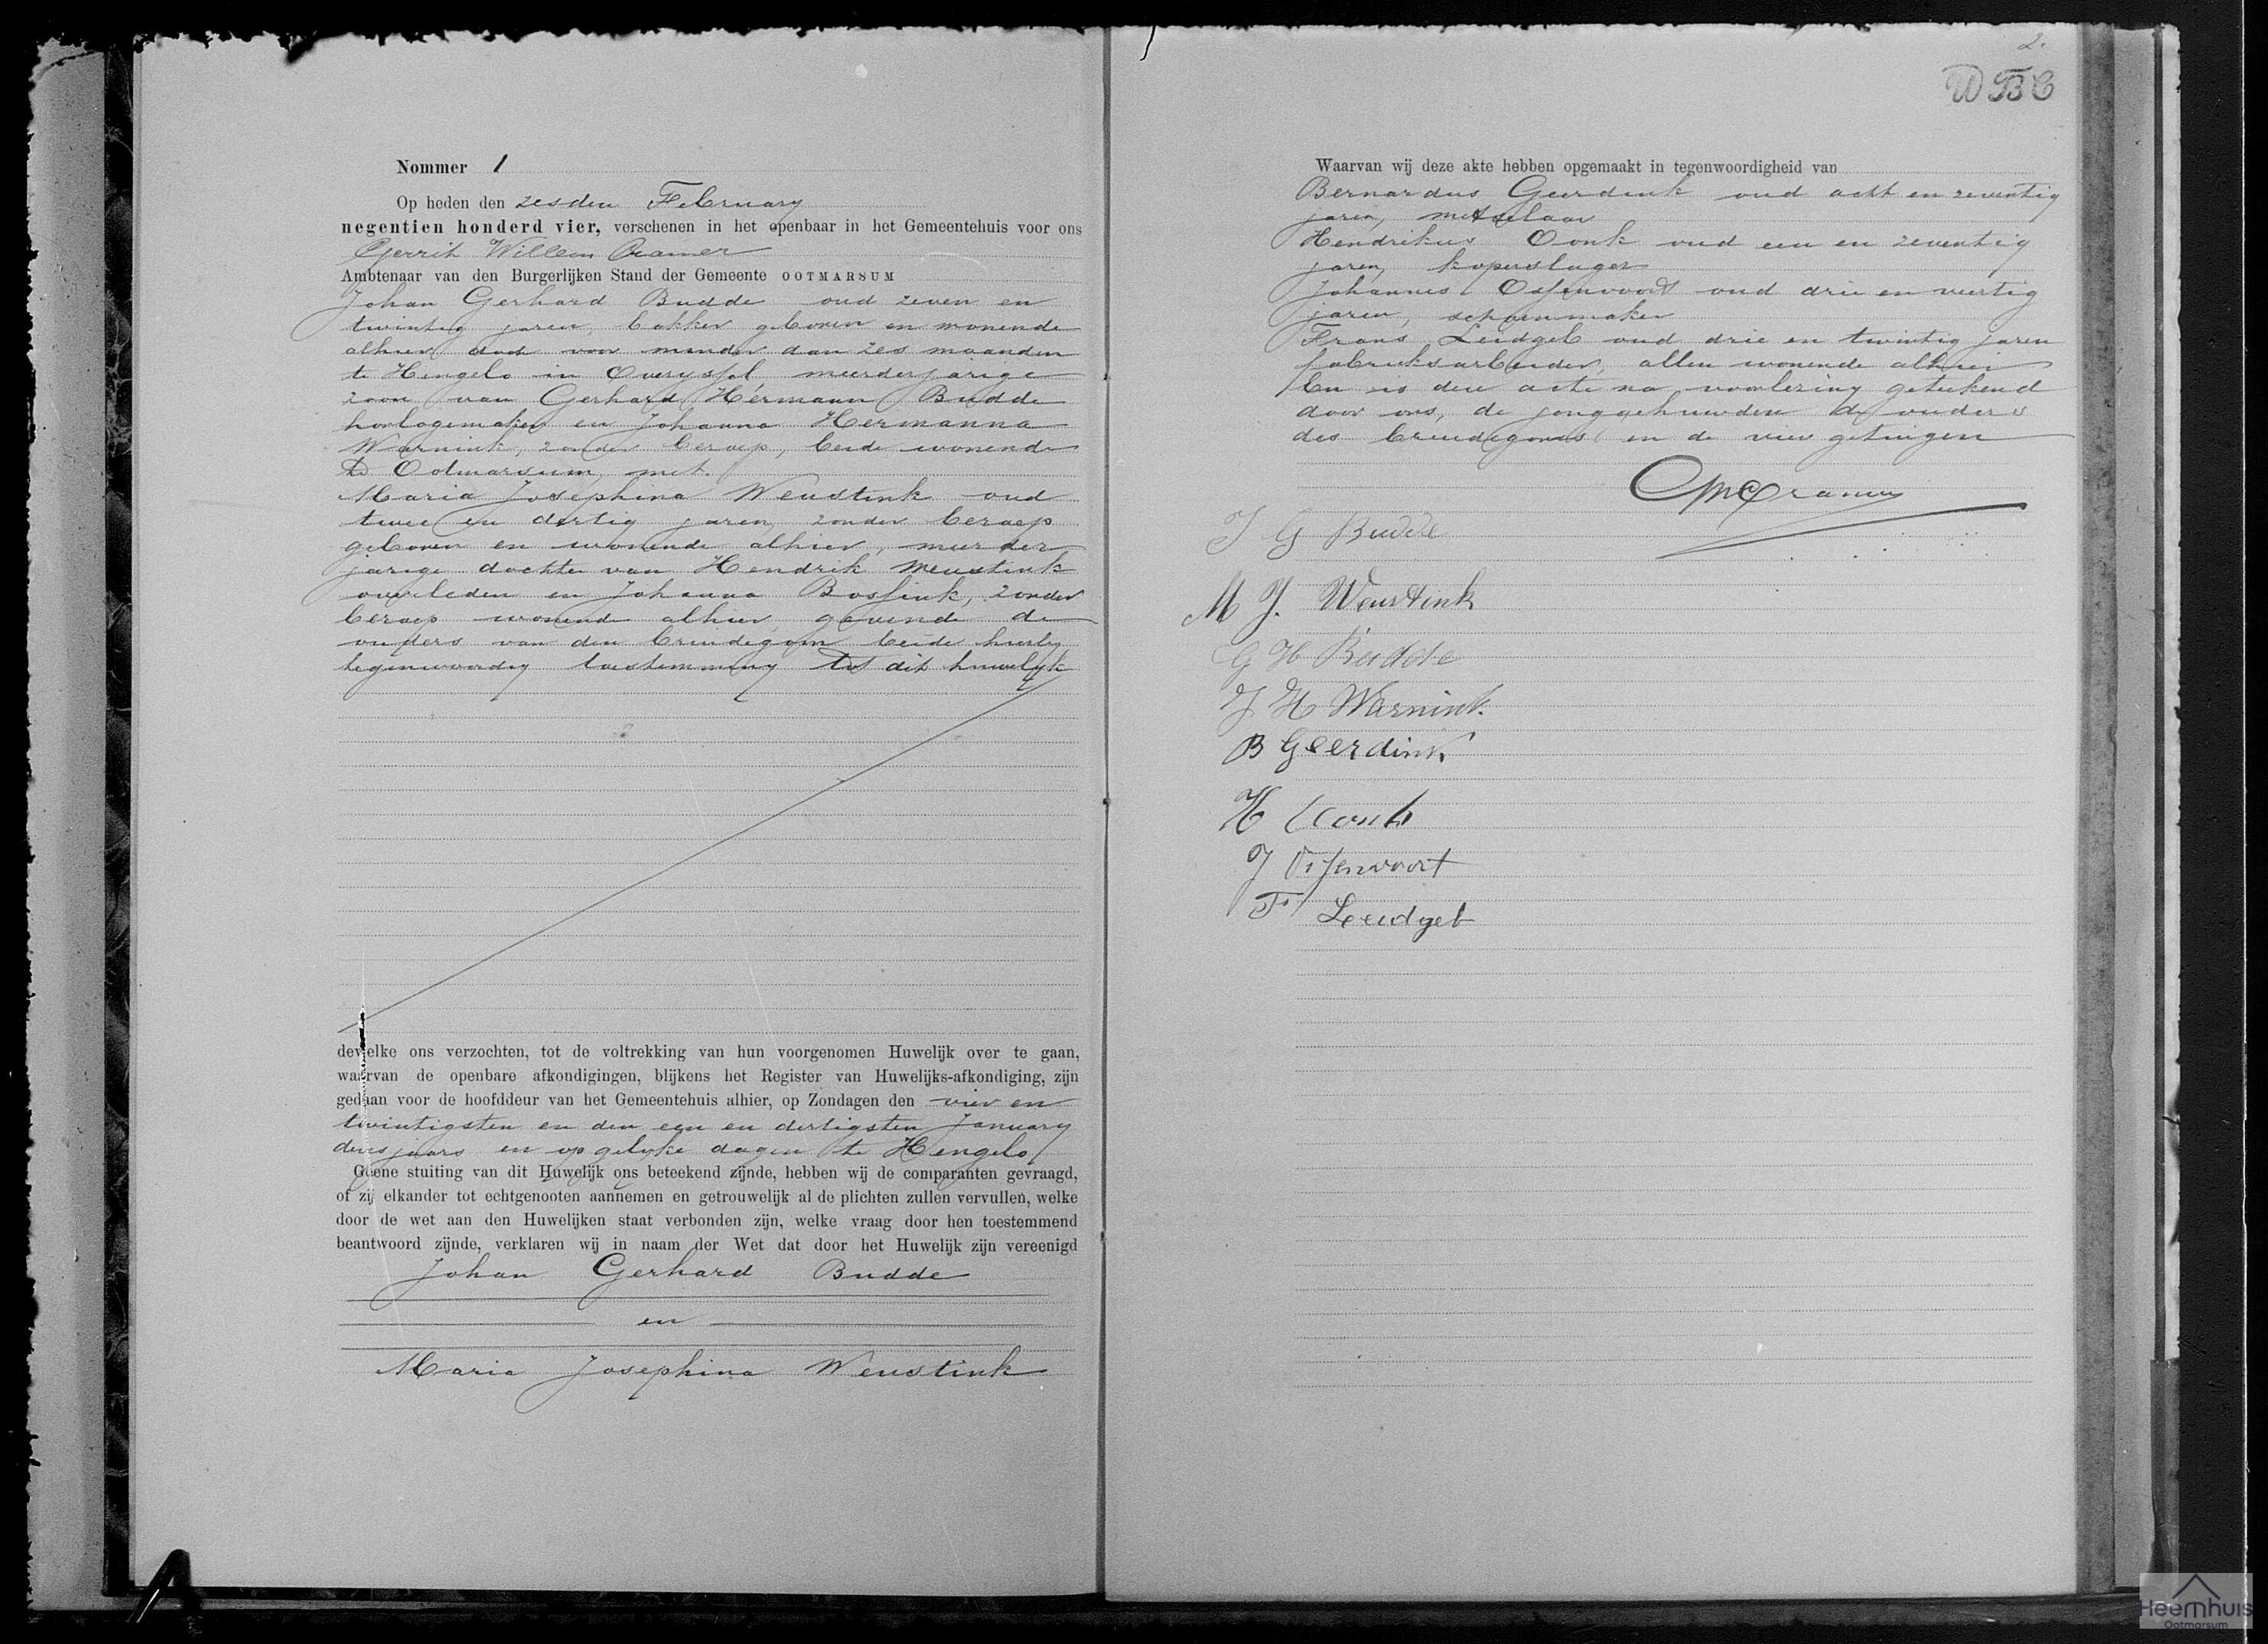 Nommer 1
Op heden den zesden February
negentien honderd vier, verschenen in het openbaar in het Gemeentehuis voor ons
Gerrit Willem Cramer
Ambtenaar van den Burgerlijken Stand der Gemeente OOTMARSUM
Johan Gerhard Budde oud zeven en
twintig jaren, bakker geboren en wonende
alhier doch voor minder dan zes maanden
te Hengelo in Overyssel, meerderjarige
zoon van Gerhard Hermann Budde
horlogemaker en Johanna Hermanna
Warnink, zonder beroep, beide wonende
te Ootmarsum, met
Maria Josephina Weustink oud
twee en dertig jaren, zonder beroep
geboren en wonende alhier, meerder
jarige dochter van Hendrik Weustink
overleden en Johanna Bossink, zonder
beroep wonend alhier, gevende de
ouders van den bruidegom beide hierby
tegenwoordig toestemming tot dit huwelyk
dewelke ons verzochten, tot de voltrekking van hun voorgenomen Huwelijk over te gaan,
waarvan de openbare afkondigingen, blijkens het Register van Huwelijks-afkondiging, zijn
gedaan voor de hoofddeur van het Gemeentehuis alhier, op Zondagen den vier en
twintigsten en den een en dertigsten January
dezes jaars en op gelyke dagen te Hengelo
Geene stuiting van dit Huwelijk ons beteekend zijnde, hebben wij de comparanten gevraagd,
of zij elkander tot echtgenooten aannemen en getrouwelijk al de plichten zullen vervullen, welke
door de wet aan den Huwelijken staat verbonden zijn, welke vraag door hen toestemmend
beantwoord zijnde, verklaren wij in naam der Wet dat door het Huwelijk zijn vereenigd
Johan Gerhard Budde
en
Maria Josephina Weustink
2.
WBC
Waarvan wij deze akte hebben opgemaakt in tegenwoordigheid van
Bernardus Geerdink oud acht en zeventig
jaren, metselaar
Hendrikus Oonk oud een en zeventig
jaren, koperslager
Johannes Ossenvoort oud drie en veertig
jaren, schoenmaker
Frans Leidgeb oud drie en twintig jaren
fabrieksarbeider, allen wonende alhier
En is deze acte na voorlezing geteekend
door ons, de jonggehuwden de ouders
des bruidegoms en de vier getuigen
GWCramer
J G Budde
M J. Weustink
G H Budde
J H Warnink.
B Geerdink
H Oonk
J Ossenvoort
F Leidgeb
Heemhuis
Ootmarsum